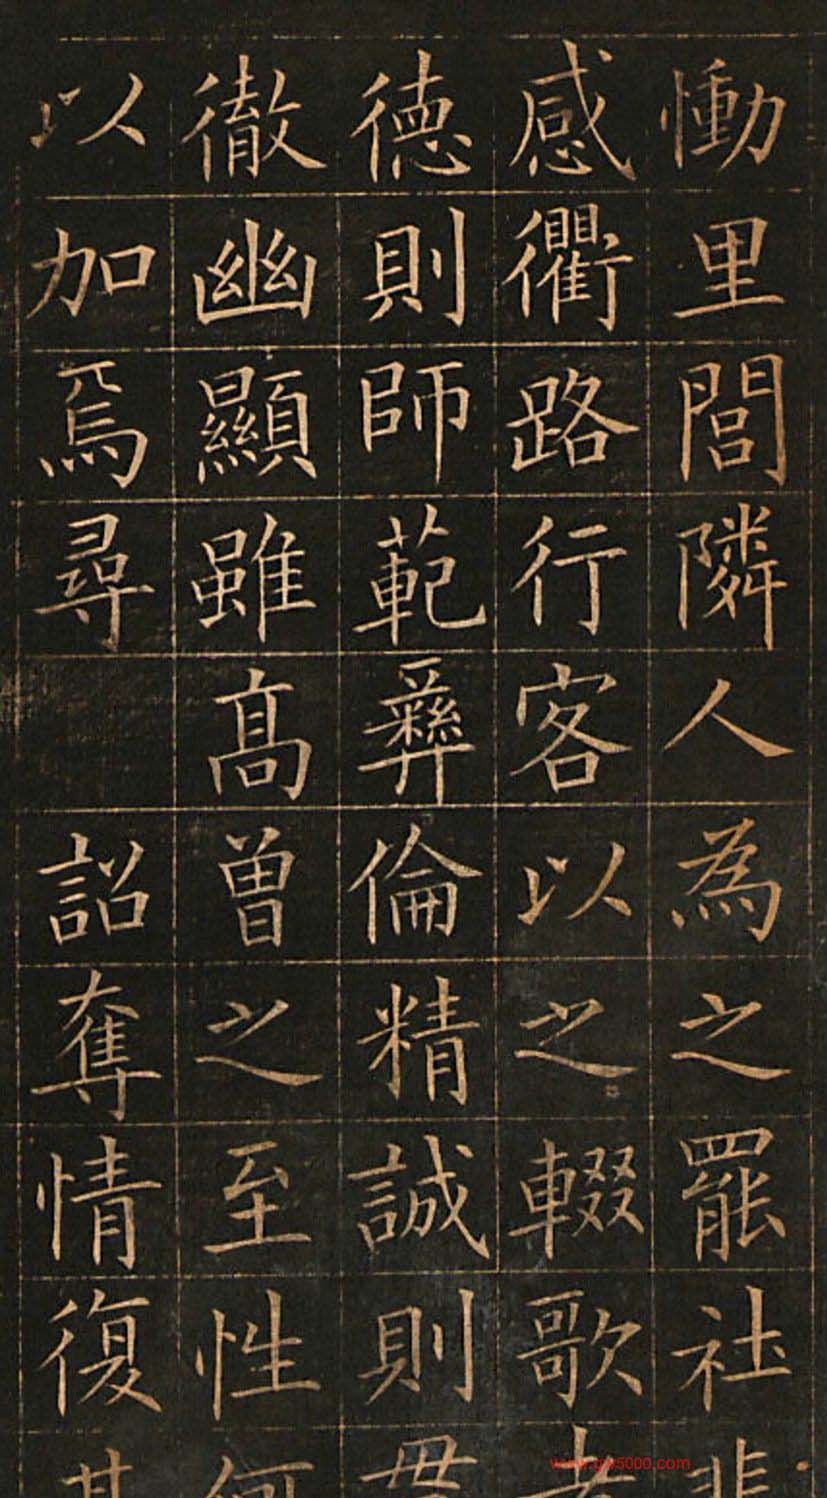 慟里閭隣人為之罷社悲
感衢路行客以之輟歌孝
德則師範彝倫精誠則貫
徹幽顯雖高曾之至性何
以加焉尋詔奪情復其
www.gw5000.com